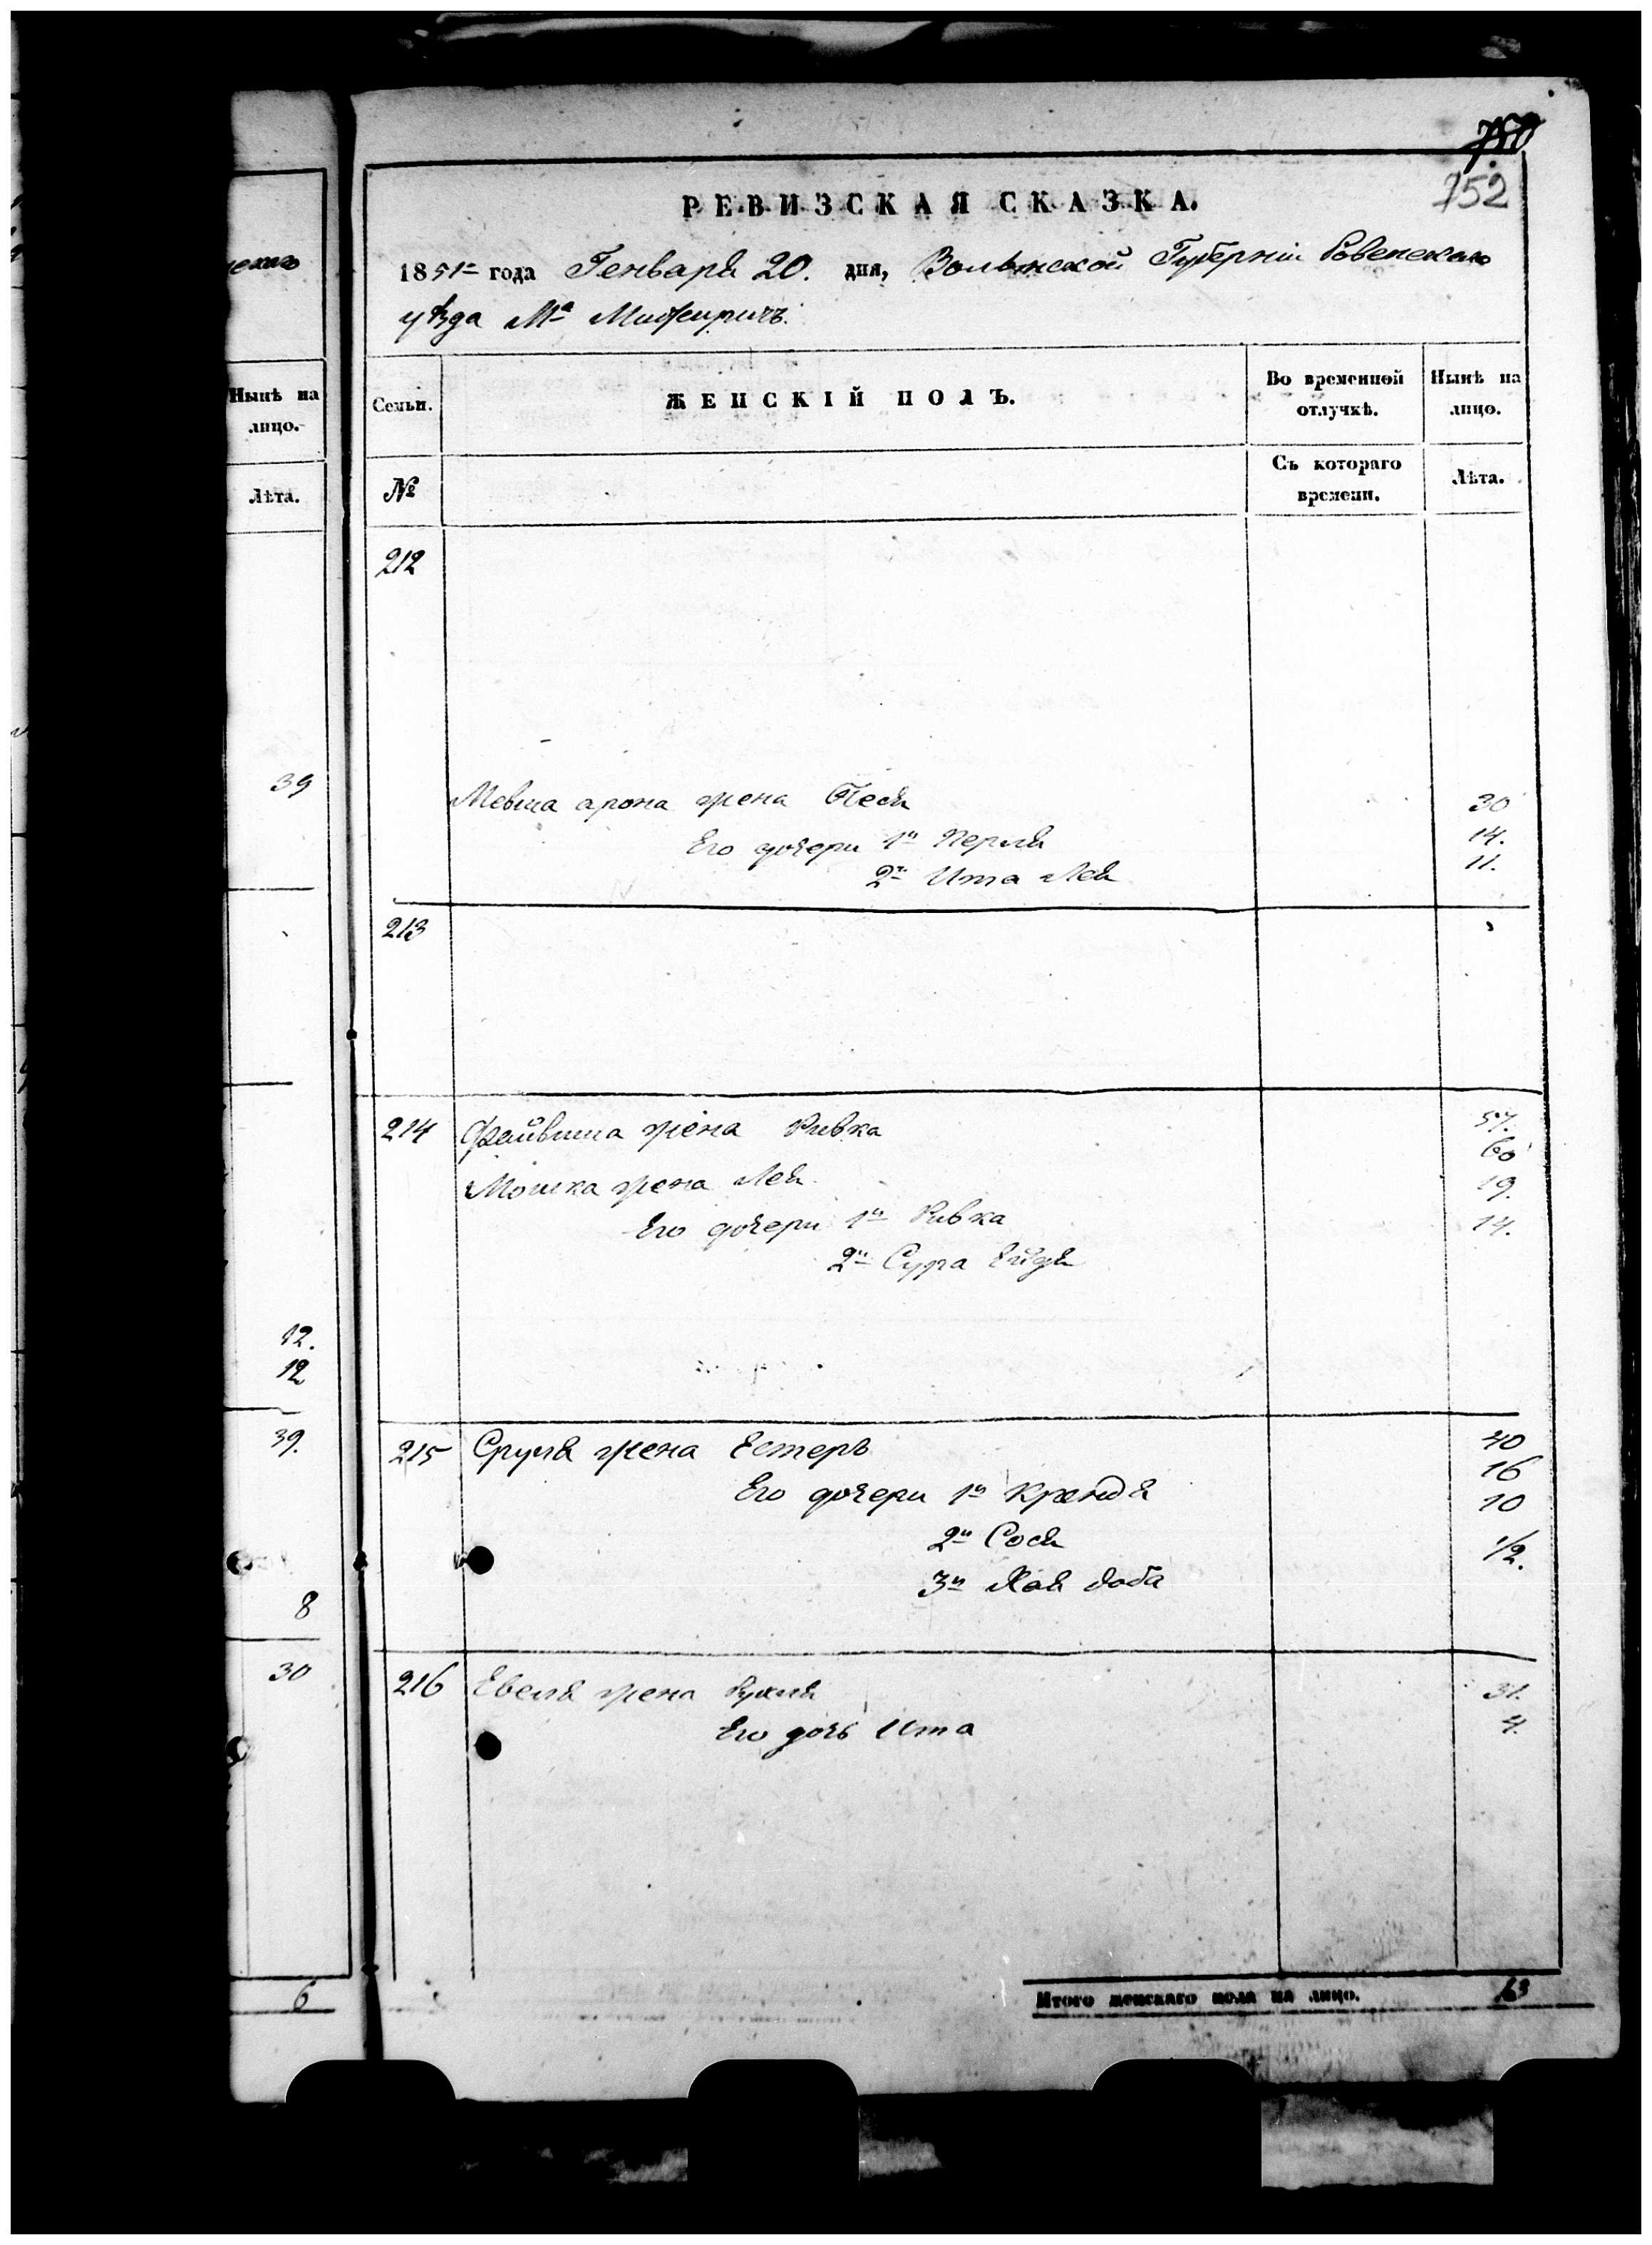 750
752
РЕВИЗСКАЯ СКАЗКА.
1851го года Генваря 20. дня, Волынской Губерніи Ровенскаго
уѣзда Мa Межиричъ.
Нынѣ на
лицо.
Лѣта.
39
12.
12
39.
8
30
6
Семьи. ЖЕНСКІЙ ПОЛЪ. Во временной отлучкѣ. Нынѣ на лицо.
№ Съ котораго времени. Лѣта.
212
Мевша арона жена Песя 30
Его дочери 1я Перля 14.
2я Ита Лея 11.
213
214 Файвиша жена Ривка 57.
Мошка жена Лея 60
Его дочери 1я Ривка 19.
2я Сура Ейдя 14.
215 Сруля жена Естеръ 40
Его дочери 1я Крендя 16
2я Сося 10
3я Хая Доба 1/2.
216 Евеля жена Рухля 31.
Его дочь Ита 4.
Итого женскаго пола на лицо. 13